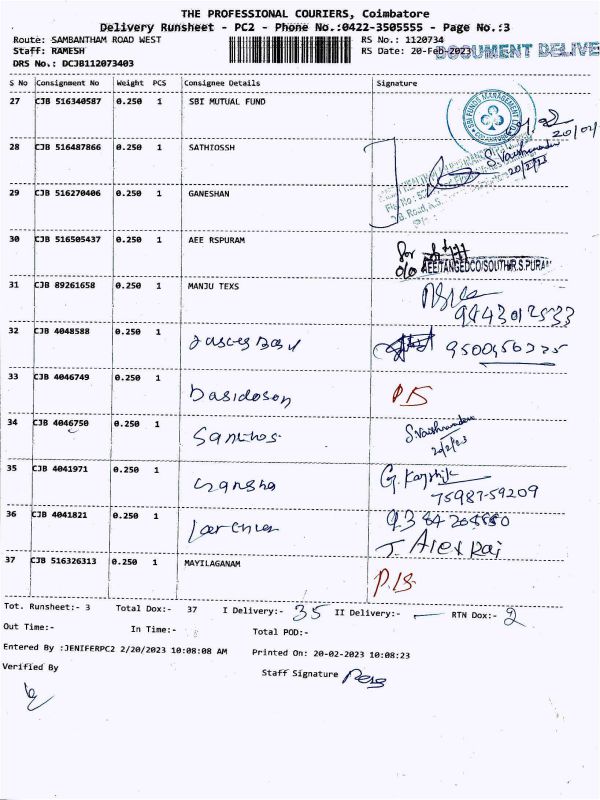 THE PROFESSIONAL COURIERS, Coimbatore
Delivery Runsheet - PC2 - Phone No.:0422-3505555 - Page No.:3
Route: SAMBANTHAM ROAD WEST RS No.: 1120734
Staff: RAMESH RS Date: 20-Feb-2023 DOCUMENT DELIVE
DRS No.: DCJB112073403
S No Consignment No Weight PCS Consignee Details Signature
27 CJB 516340587 0.250 1 SBI MUTUAL FUND
SBI FUNDS MANAGEMENT
28 CJB 516487866 0.250 1 SATHIOSSH
S. Vaishnavdevi
20/2/23
29 CJB 516270406 0.250 1 GANESHAN
30 CJB 516505437 0.250 1 AEE RSPURAM
for
o/o AEE/TANGEDCO/SOUTH/R.S.PURAM
31 CJB 89261658 0.250 1 MANJU TEXS
9443012533
32 CJB 4048588 0.250 1
33 CJB 4046749 0.250 1 P.B
34 CJB 4046750 0.250 1 Santhos
35 CJB 4041971 0.250 1 G. Karthik
75987-59209
36 CJB 4041821 0.250 1
J. Alex Raj
37 CJB 516326313 0.250 1 MAYILAGANAM P.B.
Tot. Runsheet:- 3 Total Dox:- 37 I Delivery:- 35 II Delivery:- RTN Dox:- 2
Out Time:- In Time:- Total POD:-
Entered By :JENIFERPC2 2/20/2023 10:08:08 AM Printed On: 20-02-2023 10:08:23
Verified By Staff Signature